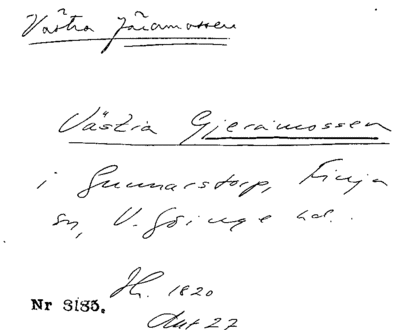 Västra Järamossen
Västra Gjeramossen
i Gunnarstorp, Finja
sn, V. Göinge hd.
Jb. 1820
Nr 3135.
Akt 27